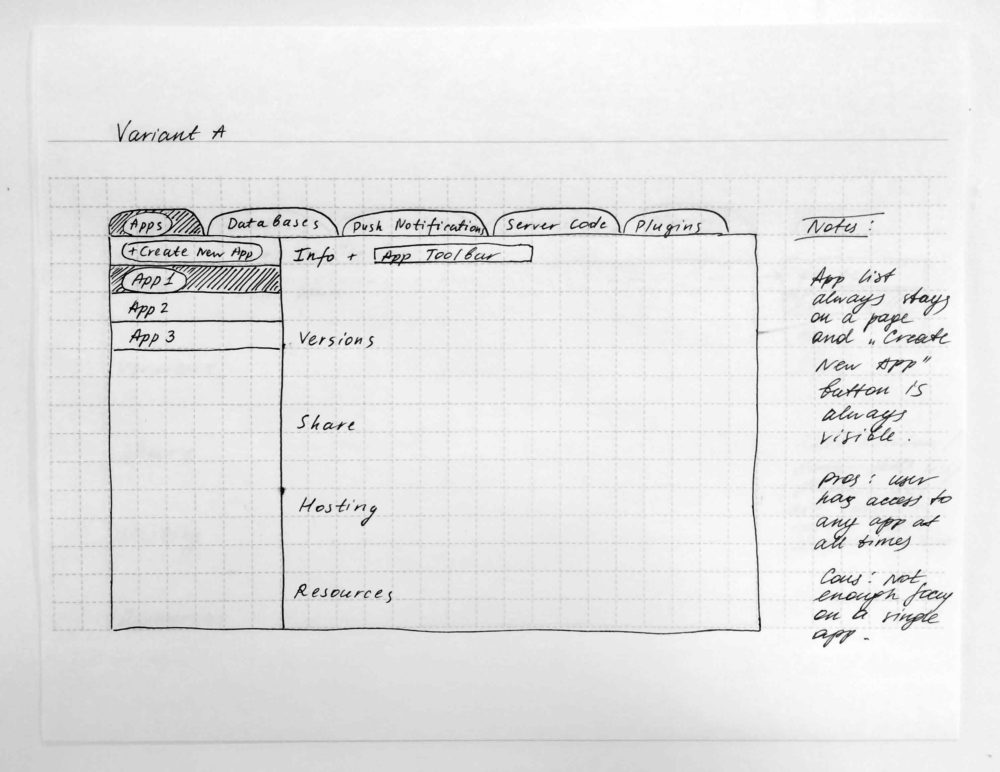 Variant A
Apps
DataBases
Push Notifications
Server Code
Plugins
+Create New App
App 1
App 2
App 3
Info +
App ToolBar
Versions
Share
Hosting
Resources
Notes:
App list
always stays
on a page
and „Create
New App"
button is
always
visible.
Pros: user
has access to
any app at
all times
Cons: not
enough focus
on a single
app.